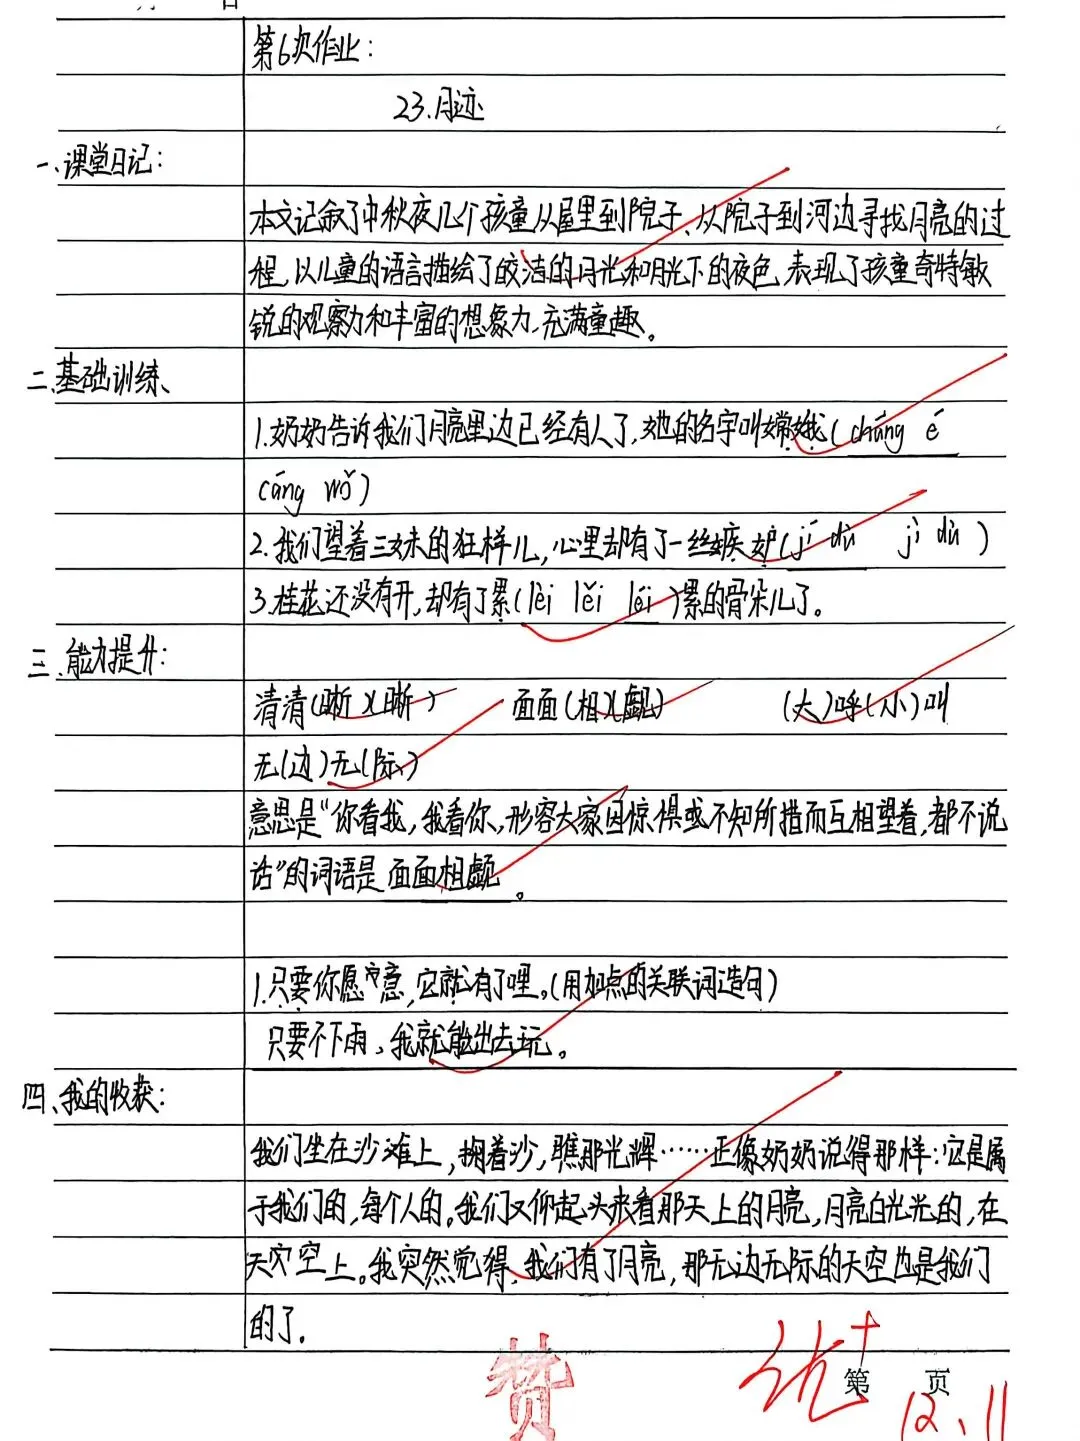 第6次作业：
23.月迹
一、课堂日记：
本文记叙了中秋夜几个孩童从屋里到院子、从院子到河边寻找月亮的过
程，以儿童的语言描绘了皎洁的月光和月光下的夜色，表现了孩童奇特敏
锐的观察力和丰富的想象力，充满童趣。
二、基础训练、
1.奶奶告诉我们月亮里边已经有人了，她的名字叫嫦娥（cháng é
cáng wǒ）
2.我们望着三妹的狂样儿，心里却有了一丝嫉妒（jí dù  jì dù）
3.桂花还没有开，却有了累（lèi lěi léi）累的骨朵儿了。
三、能力提升：
清清（晰）（晰） 面面（相）（觑） （大）呼（小）叫
无（边）无（际）
意思是“你看我，我看你，形容大家因惊惧或不知所措而互相望着，都不说
话”的词语是 面面相觑 。
1.只要你愿意，它就有了哩。（用加点的关联词造句）
只要不下雨，我就能出去玩。
四、我的收获：
我们坐在沙滩上，掬着沙，瞧那光辉……正像奶奶说得那样：它是属
于我们的，每个人的。我们又仰起头来看那天上的月亮，月亮白光光的，在
天空上。我突然觉得，我们有了月亮，那无边无际的天空也是我们
的了。
赞
优+
第 页
12、11